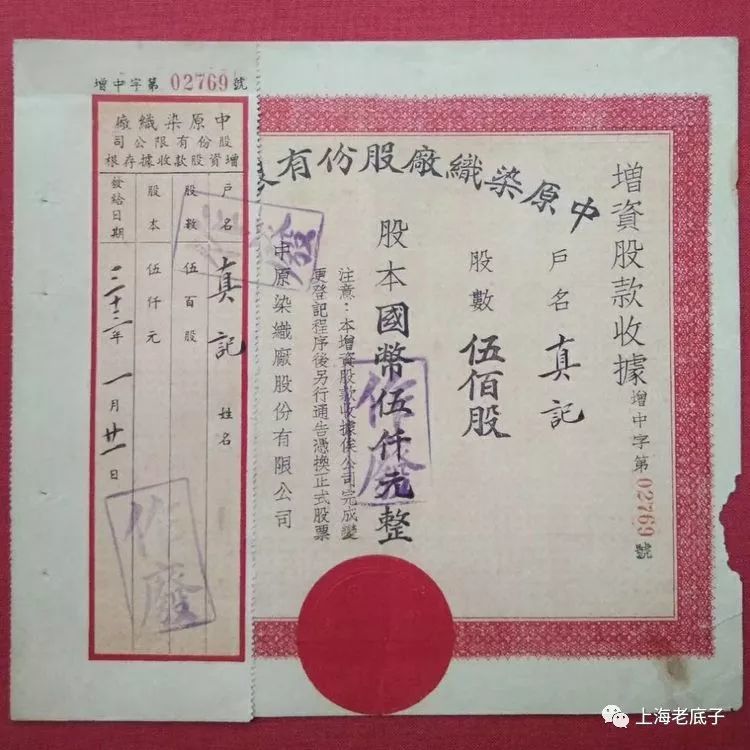 增資股款收據 增中字第02769號
中原染織廠股份有
戶名 真記
股數 伍佰股
股本國幣伍仟元整
注意：本增資股款收據俟公司完成變
更登記程序後另行通告憑換正式股票
中原染織廠股份有限公司
作廢
增中字第 02769 號
中原染織廠
股份有限公司
增資股款收據存根
戶名 真記 姓名
股數 伍百股
股本 伍仟元
發給日期 三十三年一月廿一日
作廢
作廢
上海老底子